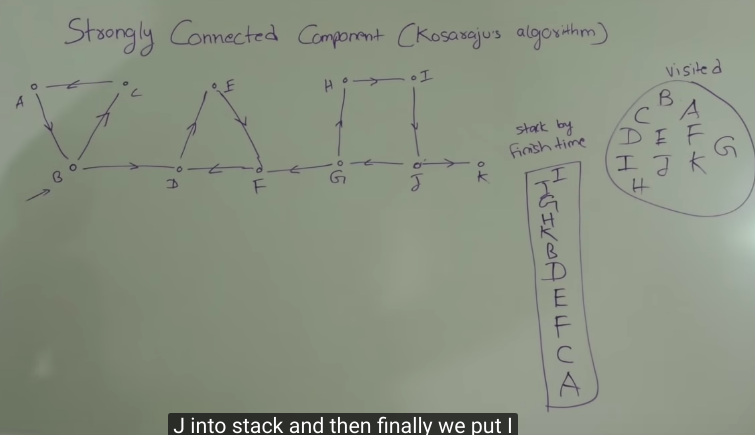 Strongly Connected Component (Kosaraju's algorithm)
visited
A
C
E
H
I
B
D
F
G
J
K
stack by
finish time
I
J
G
H
K
B
D
E
F
C
A
B
C A
D E F
G
I J K
H
J into stack and then finally we put I